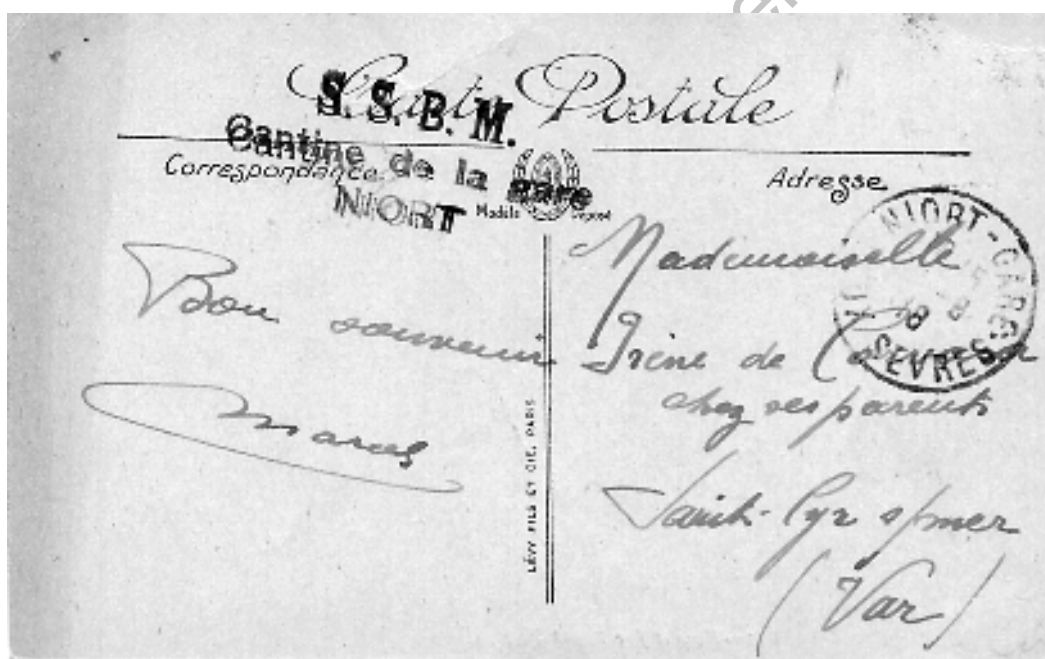 Carte Postale
S. S. B. M.
Cantine de la gare
NIORT
Correspondance
Adresse
Modèle Déposé
NIORT-GARE
SEVRES
Bon souvenir
Marcel
LÉVY FILS ET CIE, PARIS
Mademoiselle
Irène de
chez ses parents
Saint-Cyr s/mer
(Var)